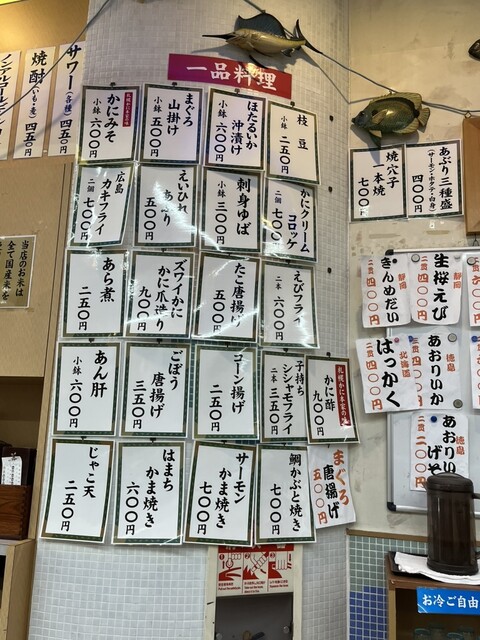 一品料理
サワー(各種)四五〇円
焼酎(いも・麦)四五〇円
当店のお米は
全て国産米を
枝豆
二五〇円
ほたるいか
沖漬け
小鉢 六〇〇円
まぐろ
山掛け
小鉢 五〇〇円
札幌かに本家の味
かにみそ
小鉢 六〇〇円
かにクリーム
コロッケ
二個 七〇〇円
刺身ゆば
小鉢 三〇〇円
えいひれ
あぶり
五〇〇円
広島
カキフライ
二個 七〇〇円
えびフライ
二本 六〇〇円
たこ唐揚げ
五〇〇円
ズワイかに
かに爪造り
九〇〇円
あら煮
二五〇円
札幌かに本家の味
かに酢
九〇〇円
子持ち
シシャモフライ
二本 三五〇円
コーン揚げ
二五〇円
ごぼう
唐揚げ
三五〇円
あん肝
小鉢 六〇〇円
まぐろ
唐揚げ
五〇〇円
鯛かぶと焼き
七〇〇円
サーモン
かま焼き
七〇〇円
はまち
かま焼き
六〇〇円
じゃこ天
二五〇円
あぶり三種盛
(サーモン・ホタテ・白身)
四〇〇円
焼穴子
一本焼
七〇〇円
静岡
生桜えび
静岡
きんめだい
二貫 四〇〇円
徳島
あおりいか
北海道
はっかく
二貫 四〇〇円
徳島
あおりいか
げそ
お冷ご自由